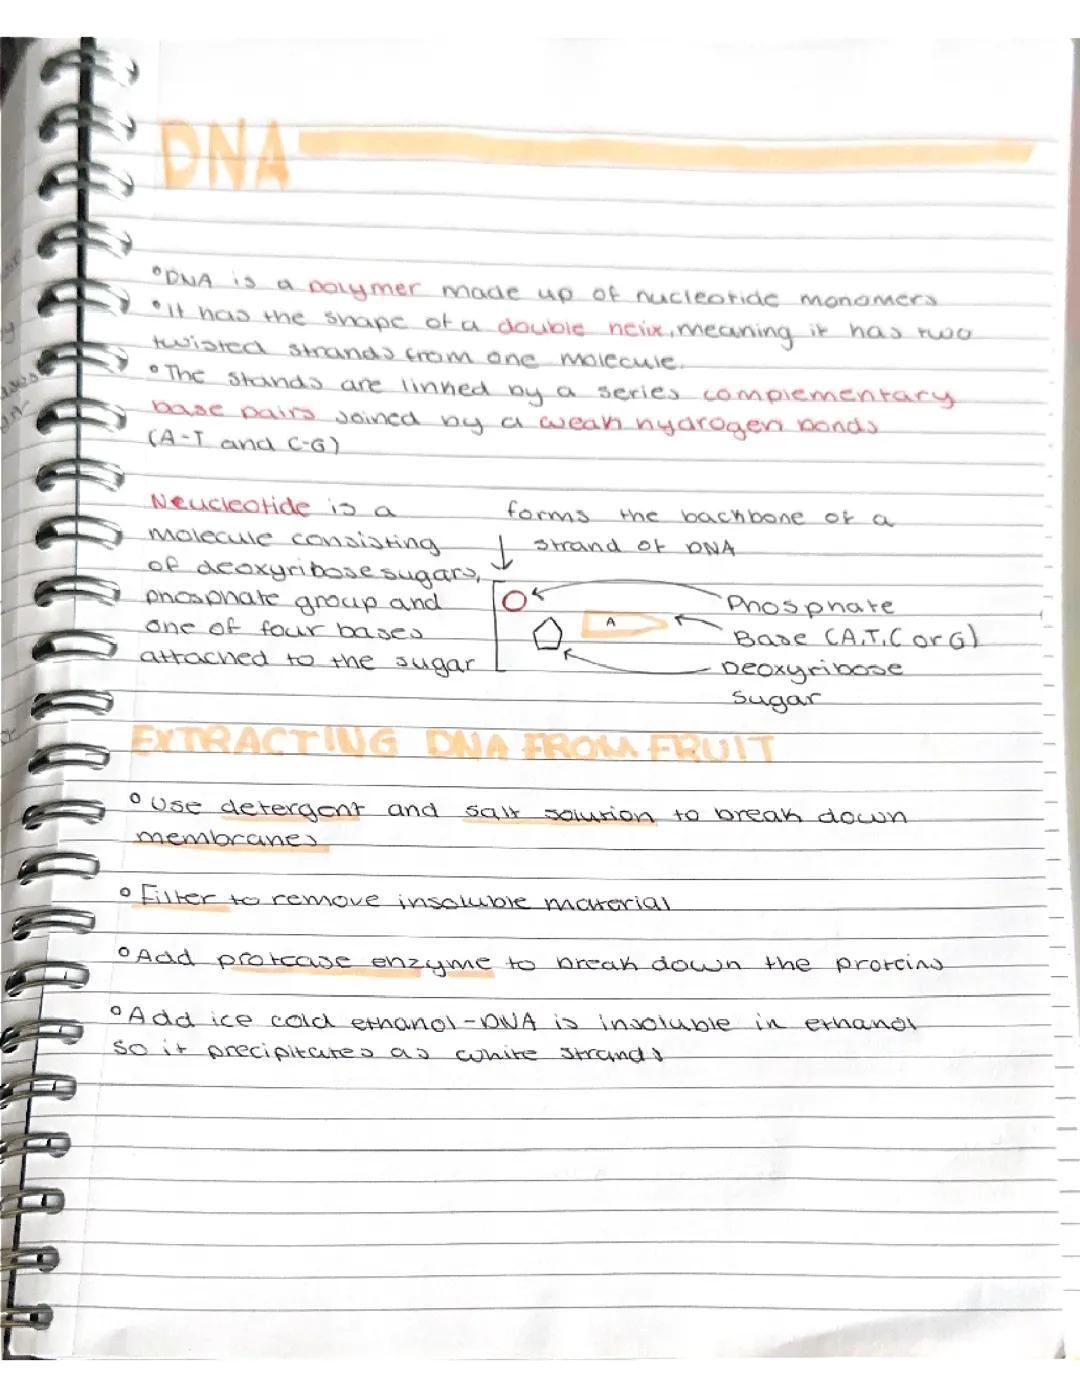 DNA
°DNA is a polymer made up of nucleotide monomers
°it has the shape of a double helix, meaning it has two
twisted strands from one molecule.
°The stands are linked by a series complementary
base pairs joined by a weak hydrogen bonds
(A-T and C-G)
Neucleotide is a
molecule consisting
of deoxyribose sugars,
phosphate group and
one of four bases
attached to the sugar
forms the backbone of a
strand of DNA
Phosphate
A
Base (A,T,C or G)
Deoxyribose
sugar
EXTRACTING DNA FROM FRUIT
° Use detergent and salt solution to break down
membranes
° Filter to remove insoluble material
°Add protease enzyme to break down the proteins
°Add ice cold ethanol-DNA is insoluble in ethanol
so it precipitates as white strands